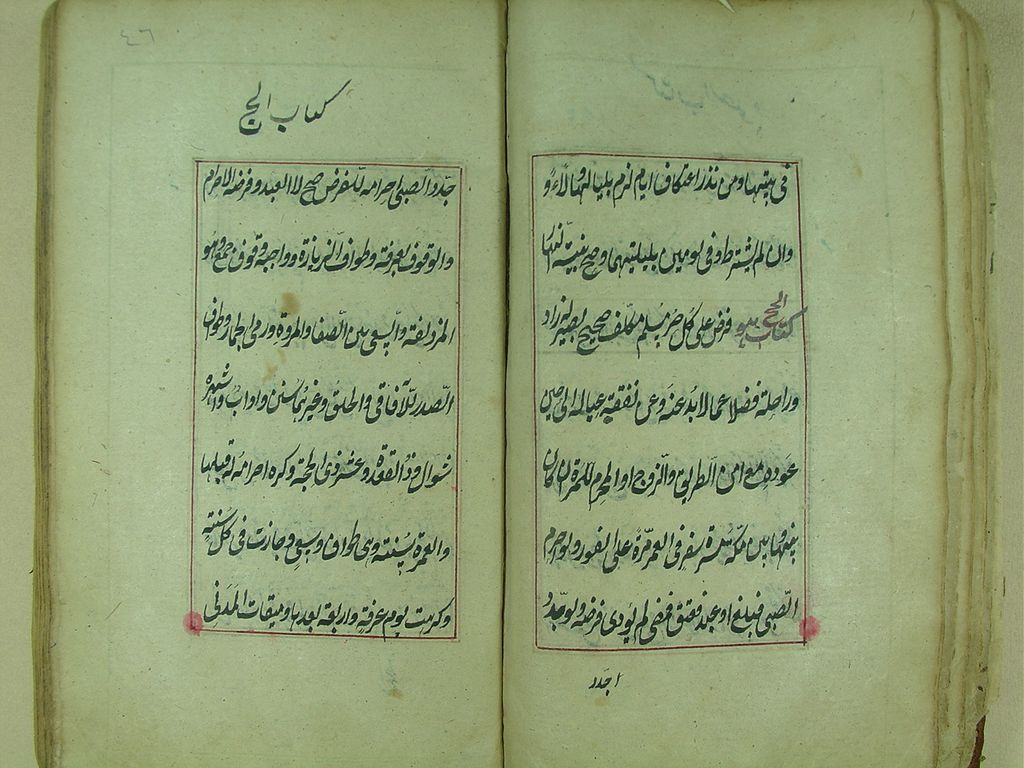 في بيتها ومن نذر اعتكاف ايام لزم بلياليها ولاءً و
وان لم يشترطه وفي يومين بليلتيهما وصح نية النهار
كتاب الحج هو فرض على كل حر مسلم مكلف صحيح بصير له زاد
وراحلة فضلا عما لا بد عنه وعن نفقة عياله الى حين
عوده مع امن الطريق والزوج او المحرم للمرأة ان كان
بينها وبين مكة مسيرة سفر في العمر مرة على الفور ولو احرم
الصبي فبلغ او عبد فعتق فمضى لم يؤد فرضه ولو جدد
جدد
٤٦
كتاب الحج
جدد الصبي احرامه للفرض صح لا العبد وفرضه الاحرام
والوقوف بعرفة وطواف الزيارة وواجبه وقوف جمع وهو
المزدلفة والسعي بين الصفا والمروة ورمي الجمار وطواف
الصدر للآفاقي والحلق وغيرهما سنن واداب واشهره
شوال وذو القعدة وعشر ذي الحجة وكره احرامه له قبلها
والعمرة سنة وهي طواف وسعي وجازت في كل سنة
وكرهت يوم عرفة واربعة بعدها وميقات المدني